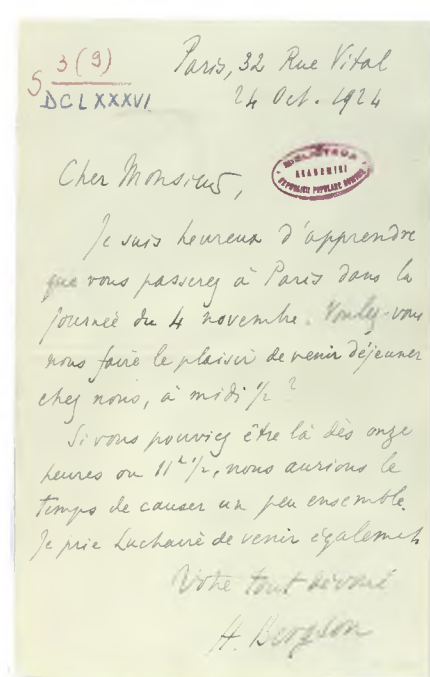 S 3 (9)
DCLXXXVI
Paris, 32 Rue Vital
24 Oct. 1924
BIBLIOTECA
ACADEMIEI
REPUBLICII POPULARE ROMÎNE
Cher Monsieur,
Je suis heureux d'apprendre
que vous passerez à Paris dans la
journée du 4 novembre. Voulez-vous
nous faire le plaisir de venir déjeuner
chez nous, à midi 1/2 ?
Si vous pouviez être là dès onze
heures ou 11h 1/2, nous aurions le
temps de causer un peu ensemble.
Je prie Luchaire de venir également
Votre tout dévoué
H. Bergson